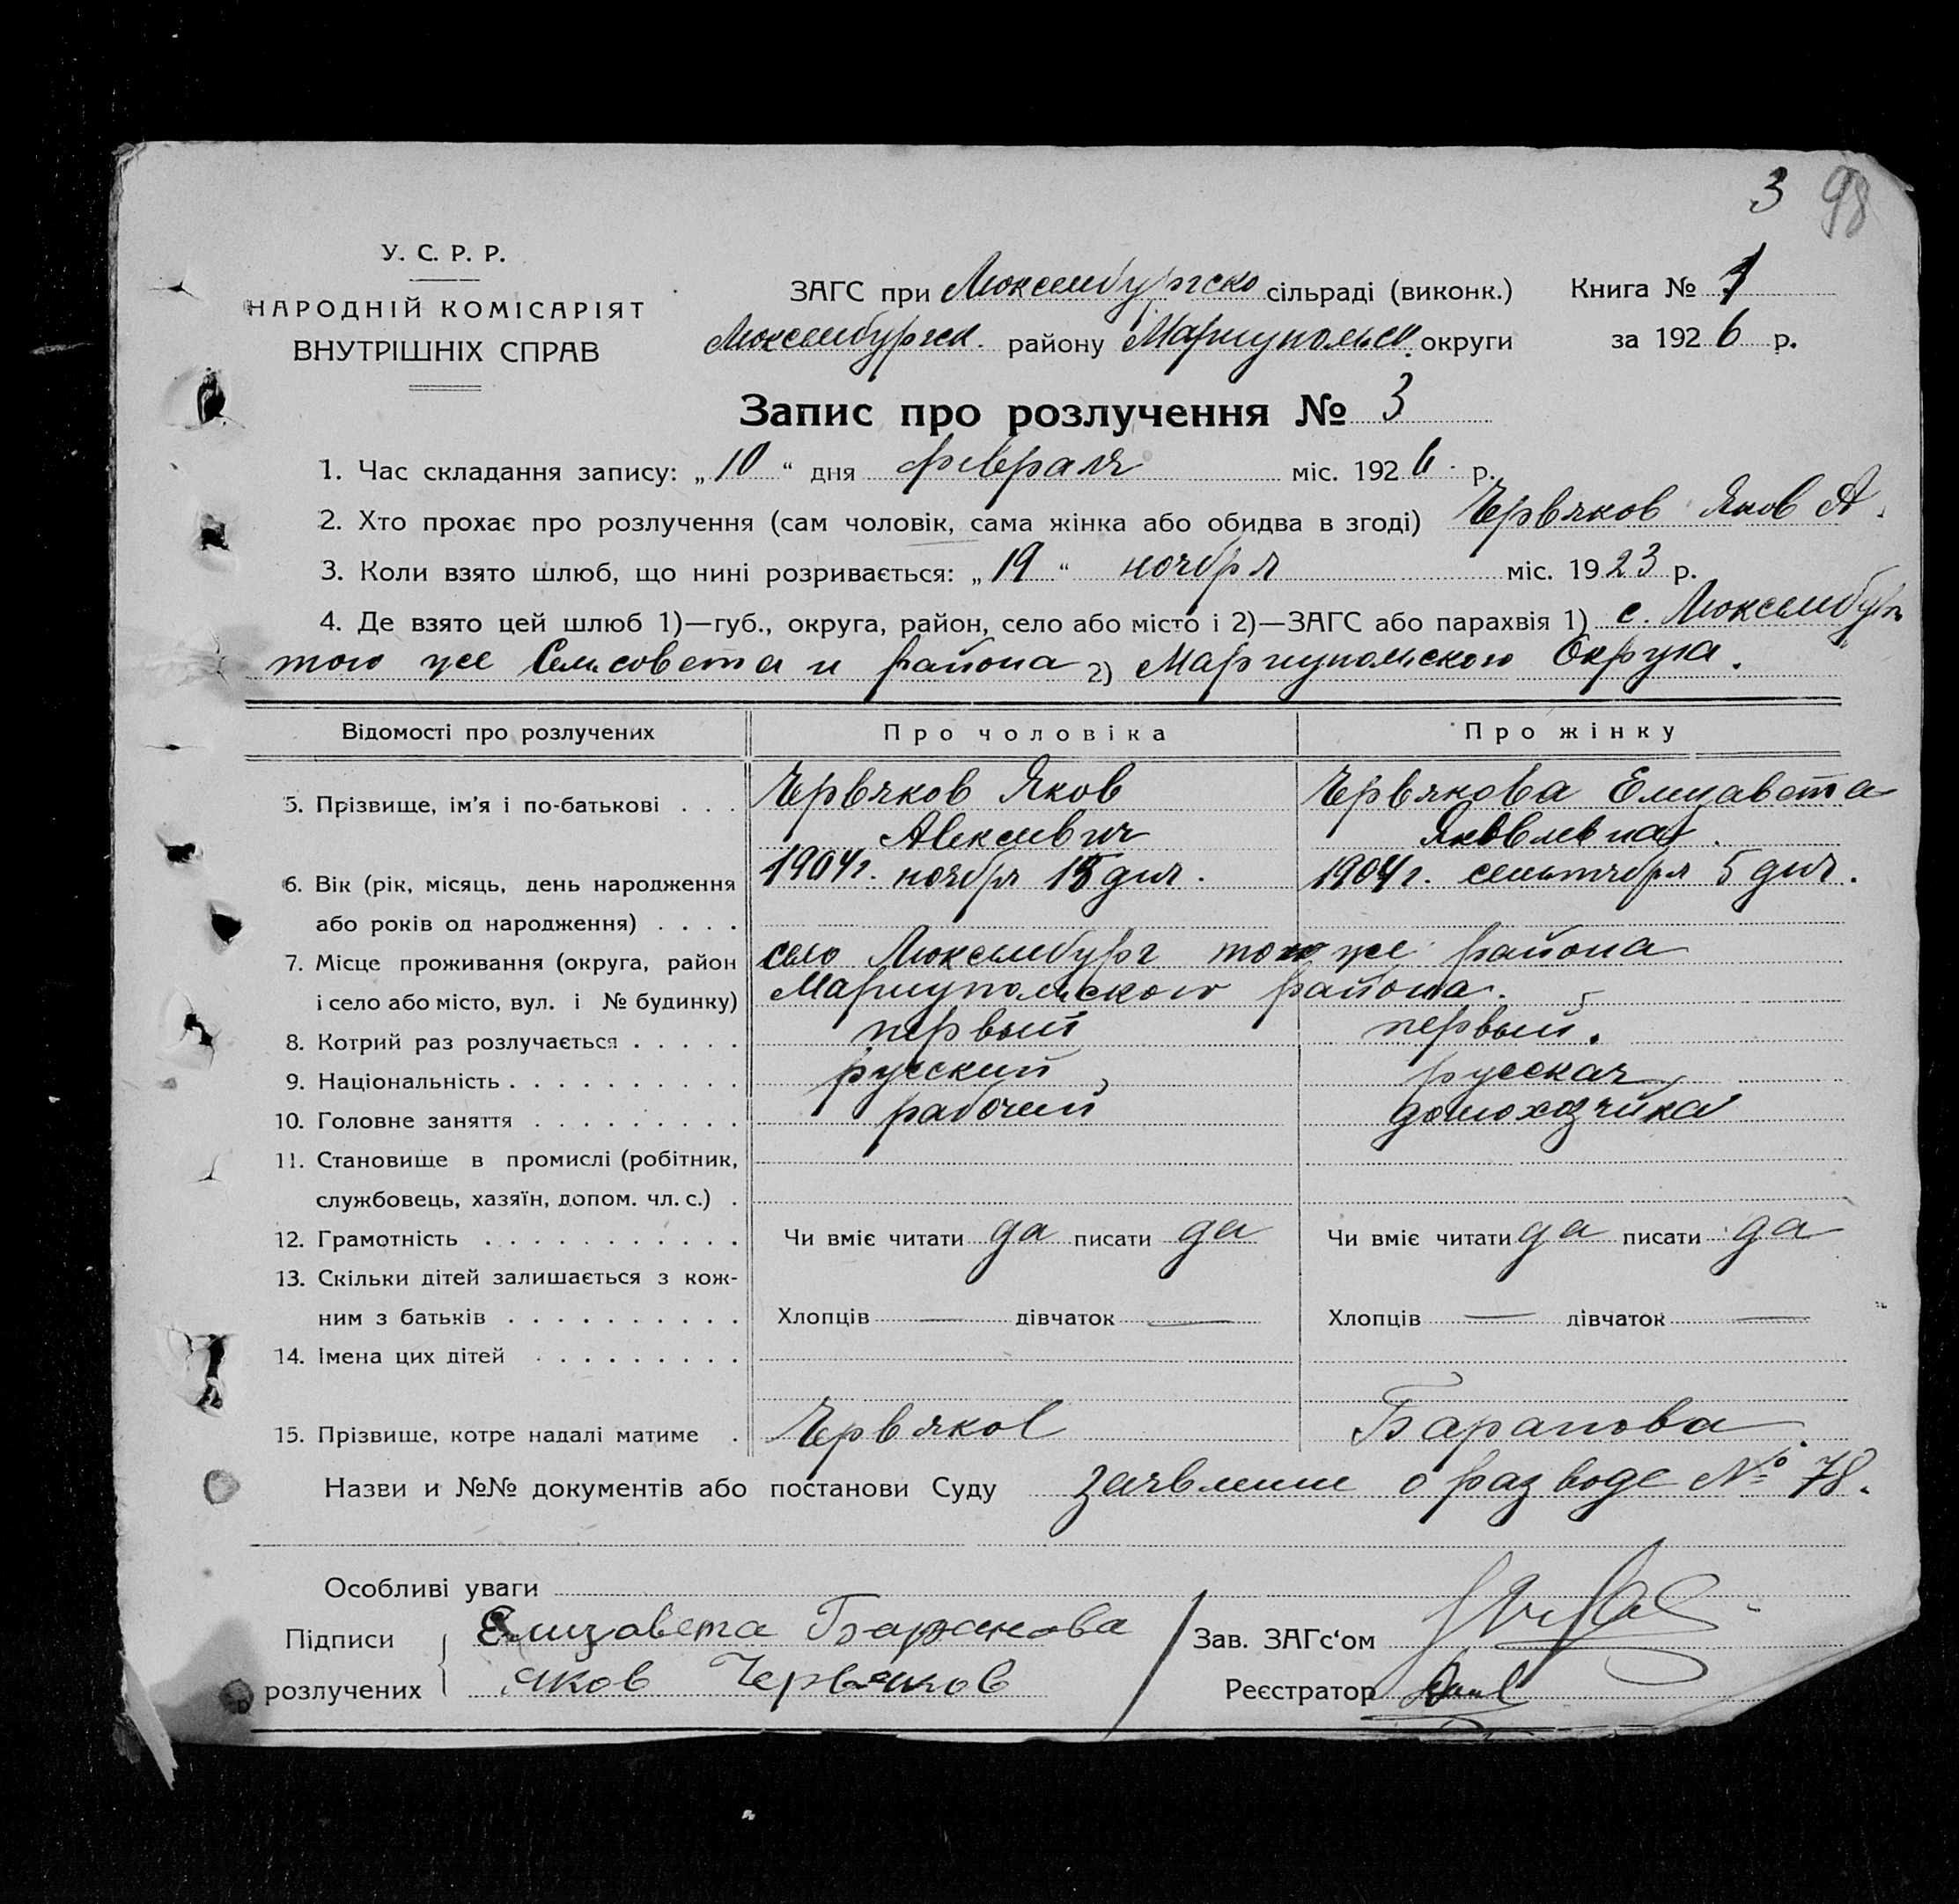 3 98
У. С. Р. Р.
НАРОДНІЙ КОМІСАРІЯТ
ВНУТРІШНІХ СПРАВ
ЗАГС при Люксембургско сільраді (виконк.) Книга № 1
Люксембургск. району Мариупольск. округи за 1926 р.
Запис про розлучення № 3
1. Час складання запису: „10“ дня февраля міс. 1926 р.
2. Хто прохає про розлучення (сам чоловік, сама жінка або обидва в згоді) Червяков Яков А.
3. Коли взято шлюб, що нині розривається: „19“ ноября міс. 1923 р.
4. Де взято цей шлюб 1)—губ., округа, район, село або місто і 2)—ЗАГС або парахвія 1) с. Люксембург
того же Сельсовета и района 2) Мариупольского Округа.
Відомості про розлучених Про чоловіка Про жінку
5. Прізвище, ім'я і по-батькові . . . Червяков Яков Червякова Елизавета
Алексеевич Яковлевна.
6. Вік (рік, місяць, день народження 1904 г. ноября 15 дня. 1904 г. сентября 5 дня.
або років од народження) . . . .
7. Місце проживання (округа, район село Люксембург того же района
і село або місто, вул. і № будинку) Мариупольского района.
8. Котрий раз розлучається . . . . . первый первый.
9. Національність . . . . . . . . . . русский русская
10. Головне заняття . . . . . . . . . рабочий домохозяйка
11. Становище в промислі (робітник,
службовець, хазяїн, допом. чл. с.) .
12. Грамотність . . . . . . . . . . . Чи вміє читати да писати да Чи вміє читати да писати да
13. Скільки дітей залишається з кож-
ним з батьків . . . . . . . . . . Хлопців — дівчаток — Хлопців — дівчаток —
14. Імена цих дітей . . . . . . . . .
15. Прізвище, котре надалі матиме . Червяков Баранова
Назви и №№ документів або постанови Суду заявление о разводе № 78.
Особливі уваги
Підписи Елизавета Баранова Зав. ЗАГс‘ом
розлучених Яков Червяков Реєстратор